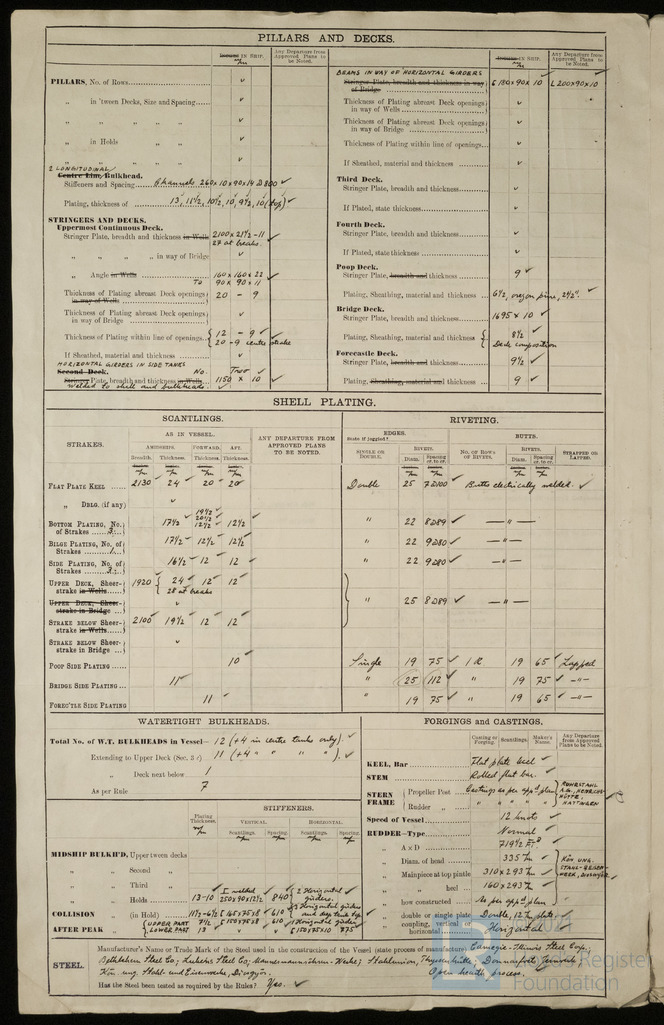 PILLARS AND DECKS.
IN SHIP.
Any Departure from Approved Plans to be Noted.
PILLARS, No. of Rows
„ in 'tween Decks, Size and Spacing
„ „ „ „
„ in Holds „
„ „ „
2 LONGITUDINAL
Centre Line Bulkhead.
Stiffeners and Spacing Channels 260x10x90x14 D 800 ✓
Plating, thickness of 13, 11½, 10½, 10, 9½, 10 (top) ✓
STRINGERS AND DECKS.
Uppermost Continuous Deck.
Stringer Plate, breadth and thickness in Wells 2100 x 21½ - 11
27 at breaks.
„ „ „ „ in way of Bridge ✓
„ Angle in Wells 160 x 160 x 22 ✓
TO 90 x 90 x 11
Thickness of Plating abreast Deck openings in way of Wells 20 - 9 ✓
Thickness of Plating abreast Deck openings in way of Bridge ✓
Thickness of Plating within line of openings 12 - 9 ✓
20 - 9 centre strake
If Sheathed, material and thickness ✓
HORIZONTAL GIRDERS IN SIDE TANKS
Second Deck. No. Two ✓
Stringer Plate, breadth and thickness in Wells 1150 x 10 ✓
Welded to shell and bulkheads.
IN SHIP.
Any Departure from Approved Plans to be Noted.
BEAMS IN WAY OF HORIZONTAL GIRDERS
Stringer Plate, breadth and thickness in way of Bridge 180x90x10 ✓ L 200x90x10
Thickness of Plating abreast Deck openings in way of Wells
Thickness of Plating abreast Deck openings in way of Bridge
Thickness of Plating within line of openings
If Sheathed, material and thickness
Third Deck.
Stringer Plate, breadth and thickness
If Plated, state thickness
Fourth Deck.
Stringer Plate, breadth and thickness
If Plated, state thickness
Poop Deck.
Stringer Plate, breadth and thickness 9 ✓
Plating, Sheathing, material and thickness 6½, oregon pine, 2½". ✓
Bridge Deck.
Stringer Plate, breadth and thickness 1695 x 10 ✓
Plating, Sheathing, material and thickness 8½ ✓
Deck composition
Forecastle Deck.
Stringer Plate, breadth and thickness 9½ ✓
Plating, Sheathing, material and thickness 9 ✓
SHELL PLATING.
SCANTLINGS.
RIVETING.
STRAKES.
AS IN VESSEL.
AMIDSHIPS. FORWARD. AFT.
Breadth. Thickness. Thickness. Thickness.
ANY DEPARTURE FROM APPROVED PLANS TO BE NOTED.
EDGES.
State if joggled?
SINGLE OR DOUBLE.
RIVETS.
Diam. Spacing cr. to cr.
BUTTS.
NO. OF ROWS OF RIVETS.
RIVETS.
Diam. Spacing cr. to cr.
STRAPPED OR LAPPED.
FLAT PLATE KEEL 2130 24 20 20 Double 25 7D100 ✓ Butts electrically welded. ✓
„ DBLG. (if any)
BOTTOM PLATING, No. of Strakes 3 17½ 19½ 20½ 12½ 12½ " 22 8D89 ✓ — " —
BILGE PLATING, No. of Strakes 1 17½ 12½ 12½ " 22 9D80 ✓ — " —
SIDE PLATING, No. of Strakes 3 16½ 12 12 " 22 9D80 ✓ — " —
UPPER DECK, Sheer-strake in Wells 1920 24 12 12
28 at breaks
UPPER DECK, Sheer-strake in Bridge " 25 8D89 ✓ — " —
STRAKE BELOW Sheer-strake in Wells 2100 19½ 12 12
STRAKE BELOW Sheer-strake in Bridge
POOP SIDE PLATING 10 Single 19 75 ✓ 1 R 19 65 ✓ Lapped
BRIDGE SIDE PLATING 11 " 25 112 ✓ " 19 75 ✓ — " —
FOREC'TLE SIDE PLATING 11 " 19 75 ✓ " 19 65 ✓ — " —
WATERTIGHT BULKHEADS.
Total No. of W.T. BULKHEADS in Vessel— 12 (+4 in centre tanks only) ✓
Extending to Upper Deck (Sec. 3 c) 11 (+4 " " " ") ✓
„ Deck next below 1
As per Rule 7
STIFFENERS.
Plating Thickness.
VERTICAL. HORIZONTAL.
Scantlings. Spacing. Scantlings. Spacing.
MIDSHIP BULKH'D, Upper tween decks
„ „ Second „
„ „ Third „
„ „ Holds 13-10 I welded 250x90x12½ 840 2 Horizontal girders.
COLLISION „ (in Hold) 610
AFTER PEAK „ UPPER PART 7½ 150x75x8 610 1 Horizontal girder
LOWER PART 13 150x75x10 875
FORGINGS and CASTINGS.
Casting or Forging. Scantlings. Maker's Name. Any Departure from Approved Plans to be Noted.
KEEL, Bar Flat plate keel ✓
STEM Rolled flat bar. ✓
STERN FRAME Propeller Post Castings as per appd plan
Rudder „ " " " "
RUHRSTAHL A.G., HENRICHSHÜTTE, HATTINGEN
Speed of Vessel 12 knots ✓
RUDDER—Type Normal ✓
„ A x D
„ Diam. of head 335 ✓
„ Mainpiece at top pintle 310 x 293 ✓
„ „ heel 160 x 293 ✓
„ how constructed As per appd plan ✓
„ double or single plate Double, 12 plate.
„ coupling, vertical or horizontal Horizontal
STEEL.
Manufacturer's Name or Trade Mark of the Steel used in the construction of the Vessel (state process of manufacture) Carnegie-Illinois Steel Corp;
Bethlehem Steel Co; Lukens Steel Co; Mannesmannröhren-Werke; Stahlunion, Thyssenhütte;
Kön. ung. Stahl- und Eisenwerke, Diosgyör. Open hearth process.
Has the Steel been tested as required by the Rules? Yes. ✓
Lloyd's Register
Foundation